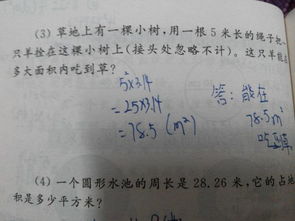 (3) 草地上有一棵小树，用一根 5 米长的绳子把一
只羊拴在这棵小树上(接头处忽略不计)。这只羊能在
多大面积内吃到草？
5²×3.14
=25×3.14
=78.5 (m²)
答：能在
78.5m²
吃到草
(4) 一个圆形水池的周长是 28.26 米，它的占地
积是多少平方米？